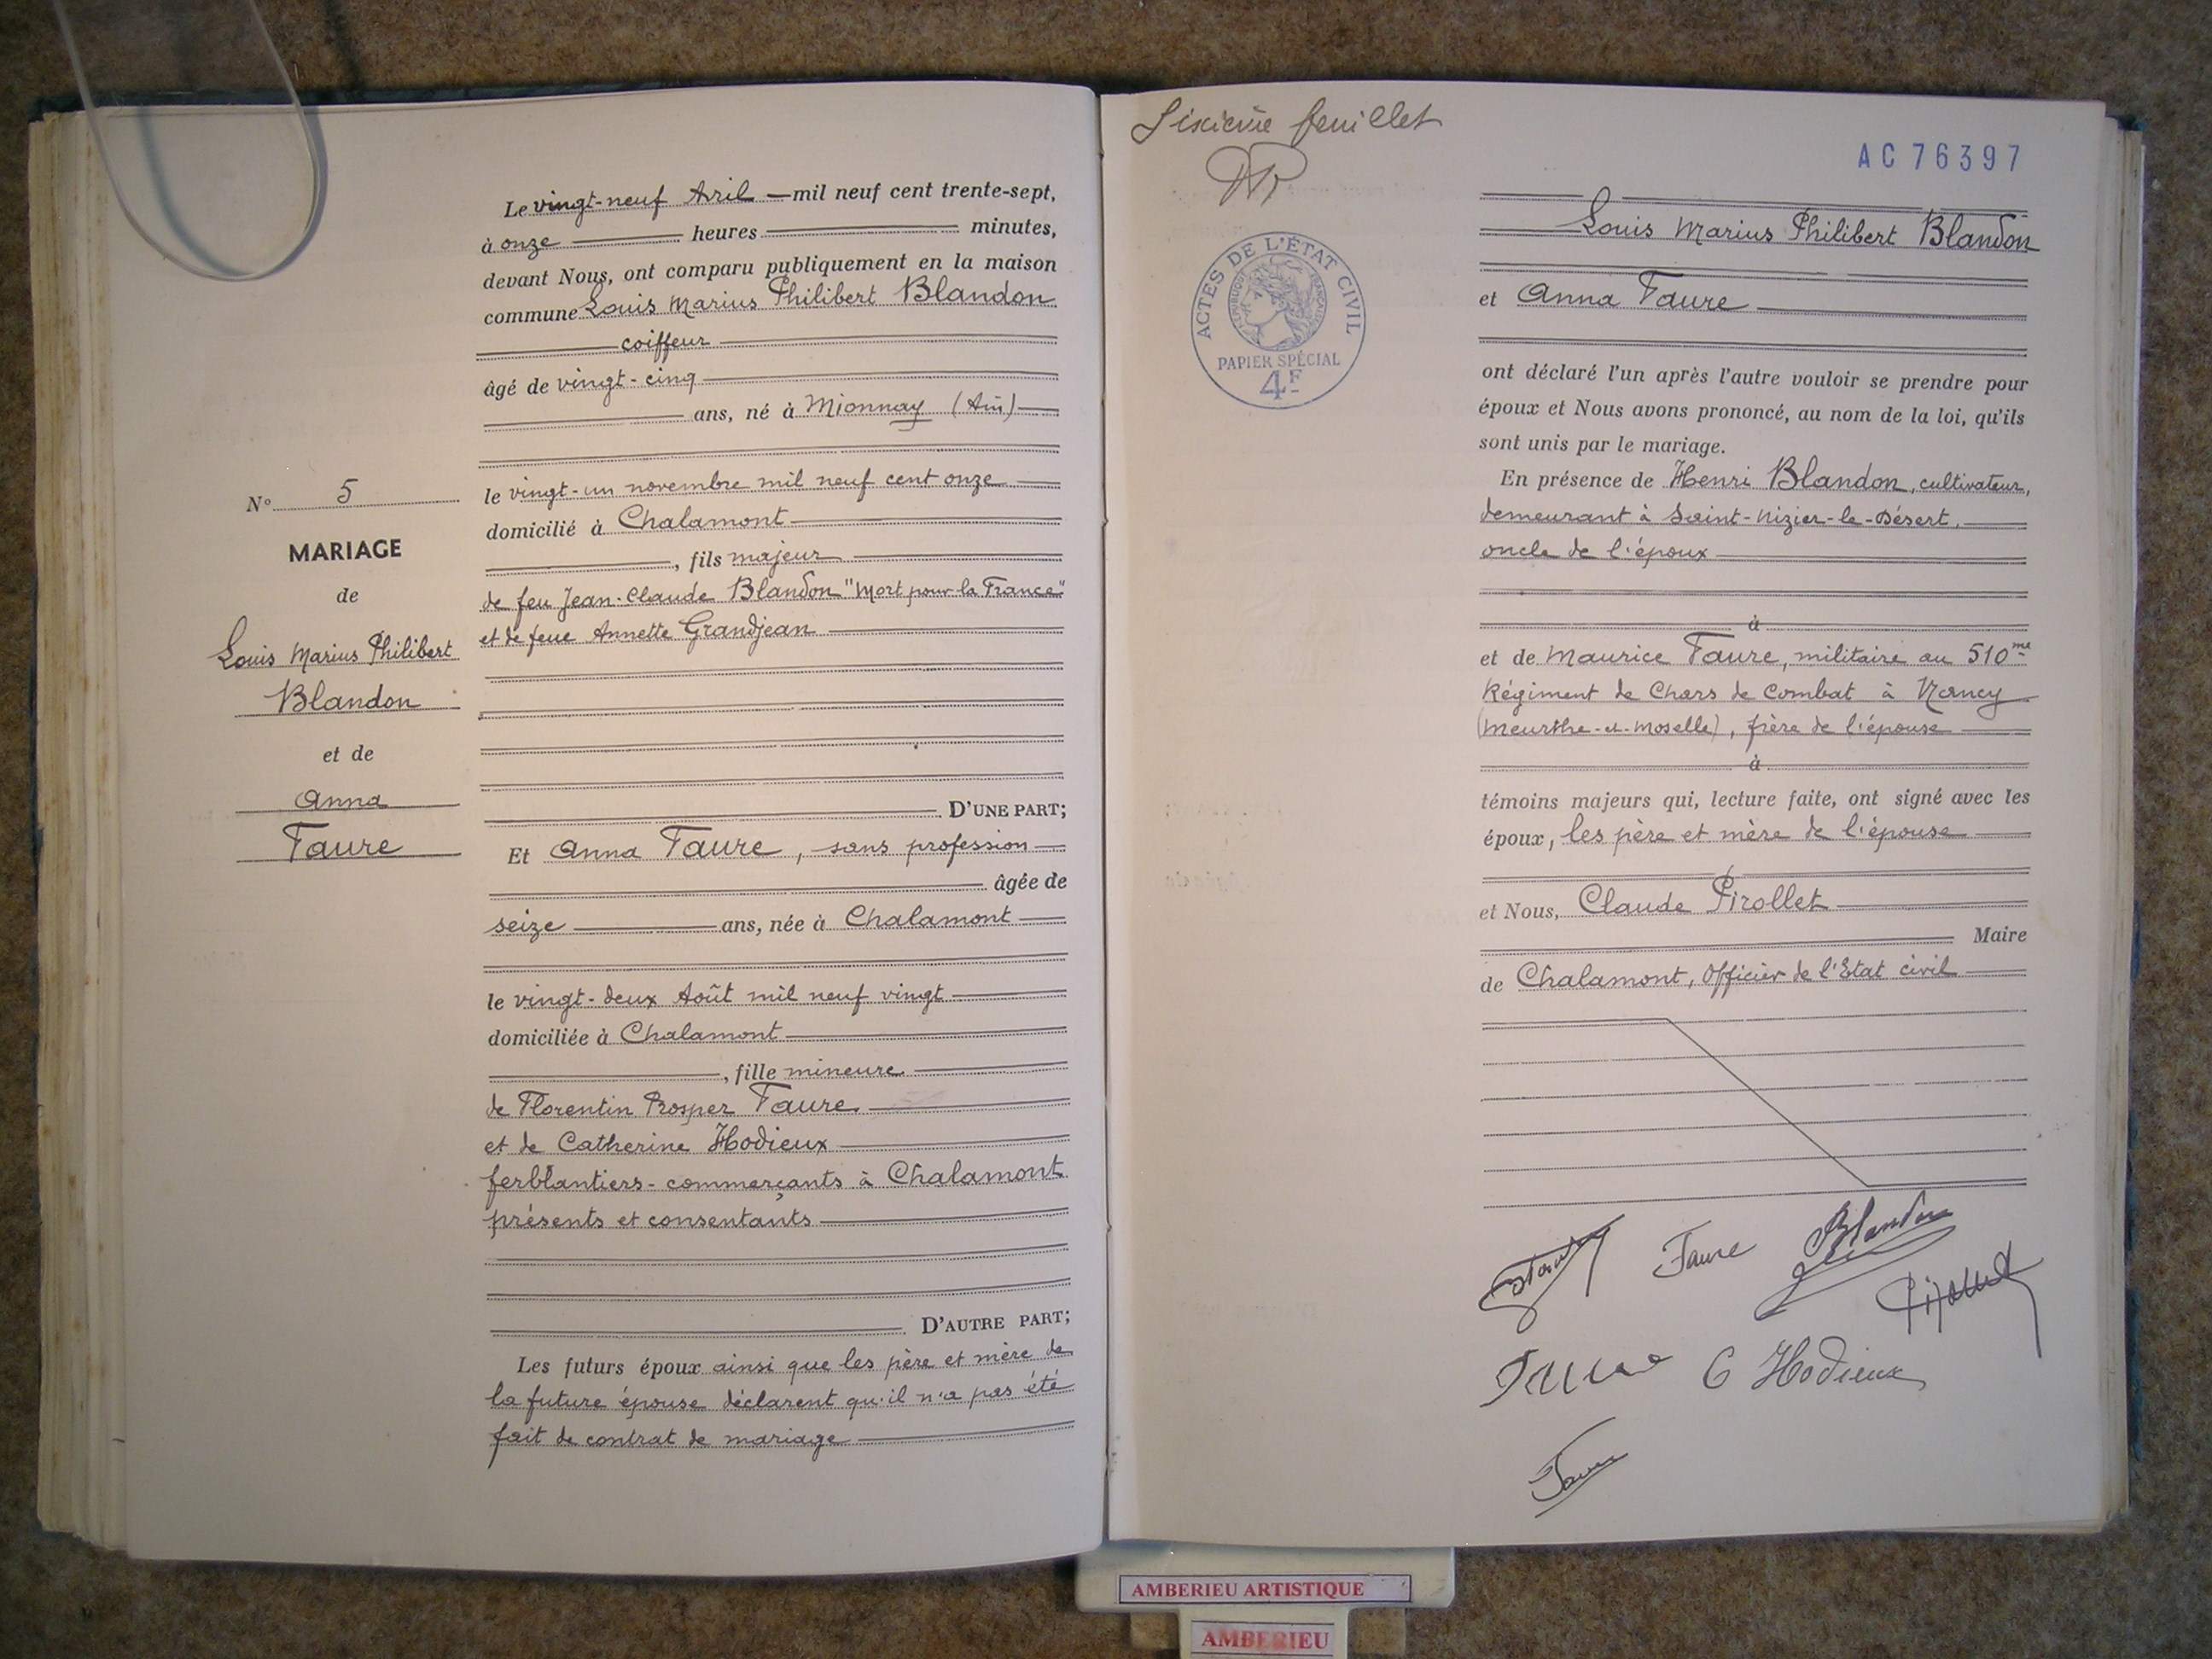 Le vingt-neuf Avril mil neuf cent trente-sept,
à onze heures minutes,
devant Nous, ont comparu publiquement en la maison
commune Louis Marius Philibert Blandon
coiffeur
âgé de vingt-cinq
ans, né à Mionnay (Ain)
le vingt-un novembre mil neuf cent onze
domicilié à Chalamont
, fils majeur
de feu Jean-Claude Blandon "Mort pour la France"
et de feue Annette Grandjean
D'UNE PART;
Et Anna Faure, sans profession
âgée de
seize ans, née à Chalamont
le vingt-deux Août mil neuf vingt
domiciliée à Chalamont
, fille mineure
de Florentin Prosper Faure
et de Catherine Hodieux
ferblantiers-commerçants à Chalamont
présents et consentants
D'AUTRE PART;
Les futurs époux ainsi que les père et mère de
la future épouse déclarent qu'il n'a pas été
fait de contrat de mariage
N° 5
MARIAGE
de
Louis Marius Philibert
Blandon
et de
Anna
Faure
Sixième feuillet
AC 76397
ACTES DE L'ÉTAT CIVIL
RÉPUBLIQUE FRANÇAISE
PAPIER SPÉCIAL
4F
Louis Marius Philibert Blandon
et Anna Faure
ont déclaré l'un après l'autre vouloir se prendre pour
époux et Nous avons prononcé, au nom de la loi, qu'ils
sont unis par le mariage.
En présence de Henri Blandon, cultivateur,
demeurant à Saint-Nizier-le-Désert,
oncle de l'époux
à
et de Maurice Faure, militaire au 510me
Régiment de Chars de Combat à Nancy
(Meurthe-et-Moselle), frère de l'épouse
à
témoins majeurs qui, lecture faite, ont signé avec les
époux, les père et mère de l'épouse
et Nous, Claude Pirollet
Maire
de Chalamont, Officier de l'Etat civil
Faure
Blandon
Pirollet
Faure
C Hodieux
Faure
AMBERIEU ARTISTIQUE
AMBERIEU